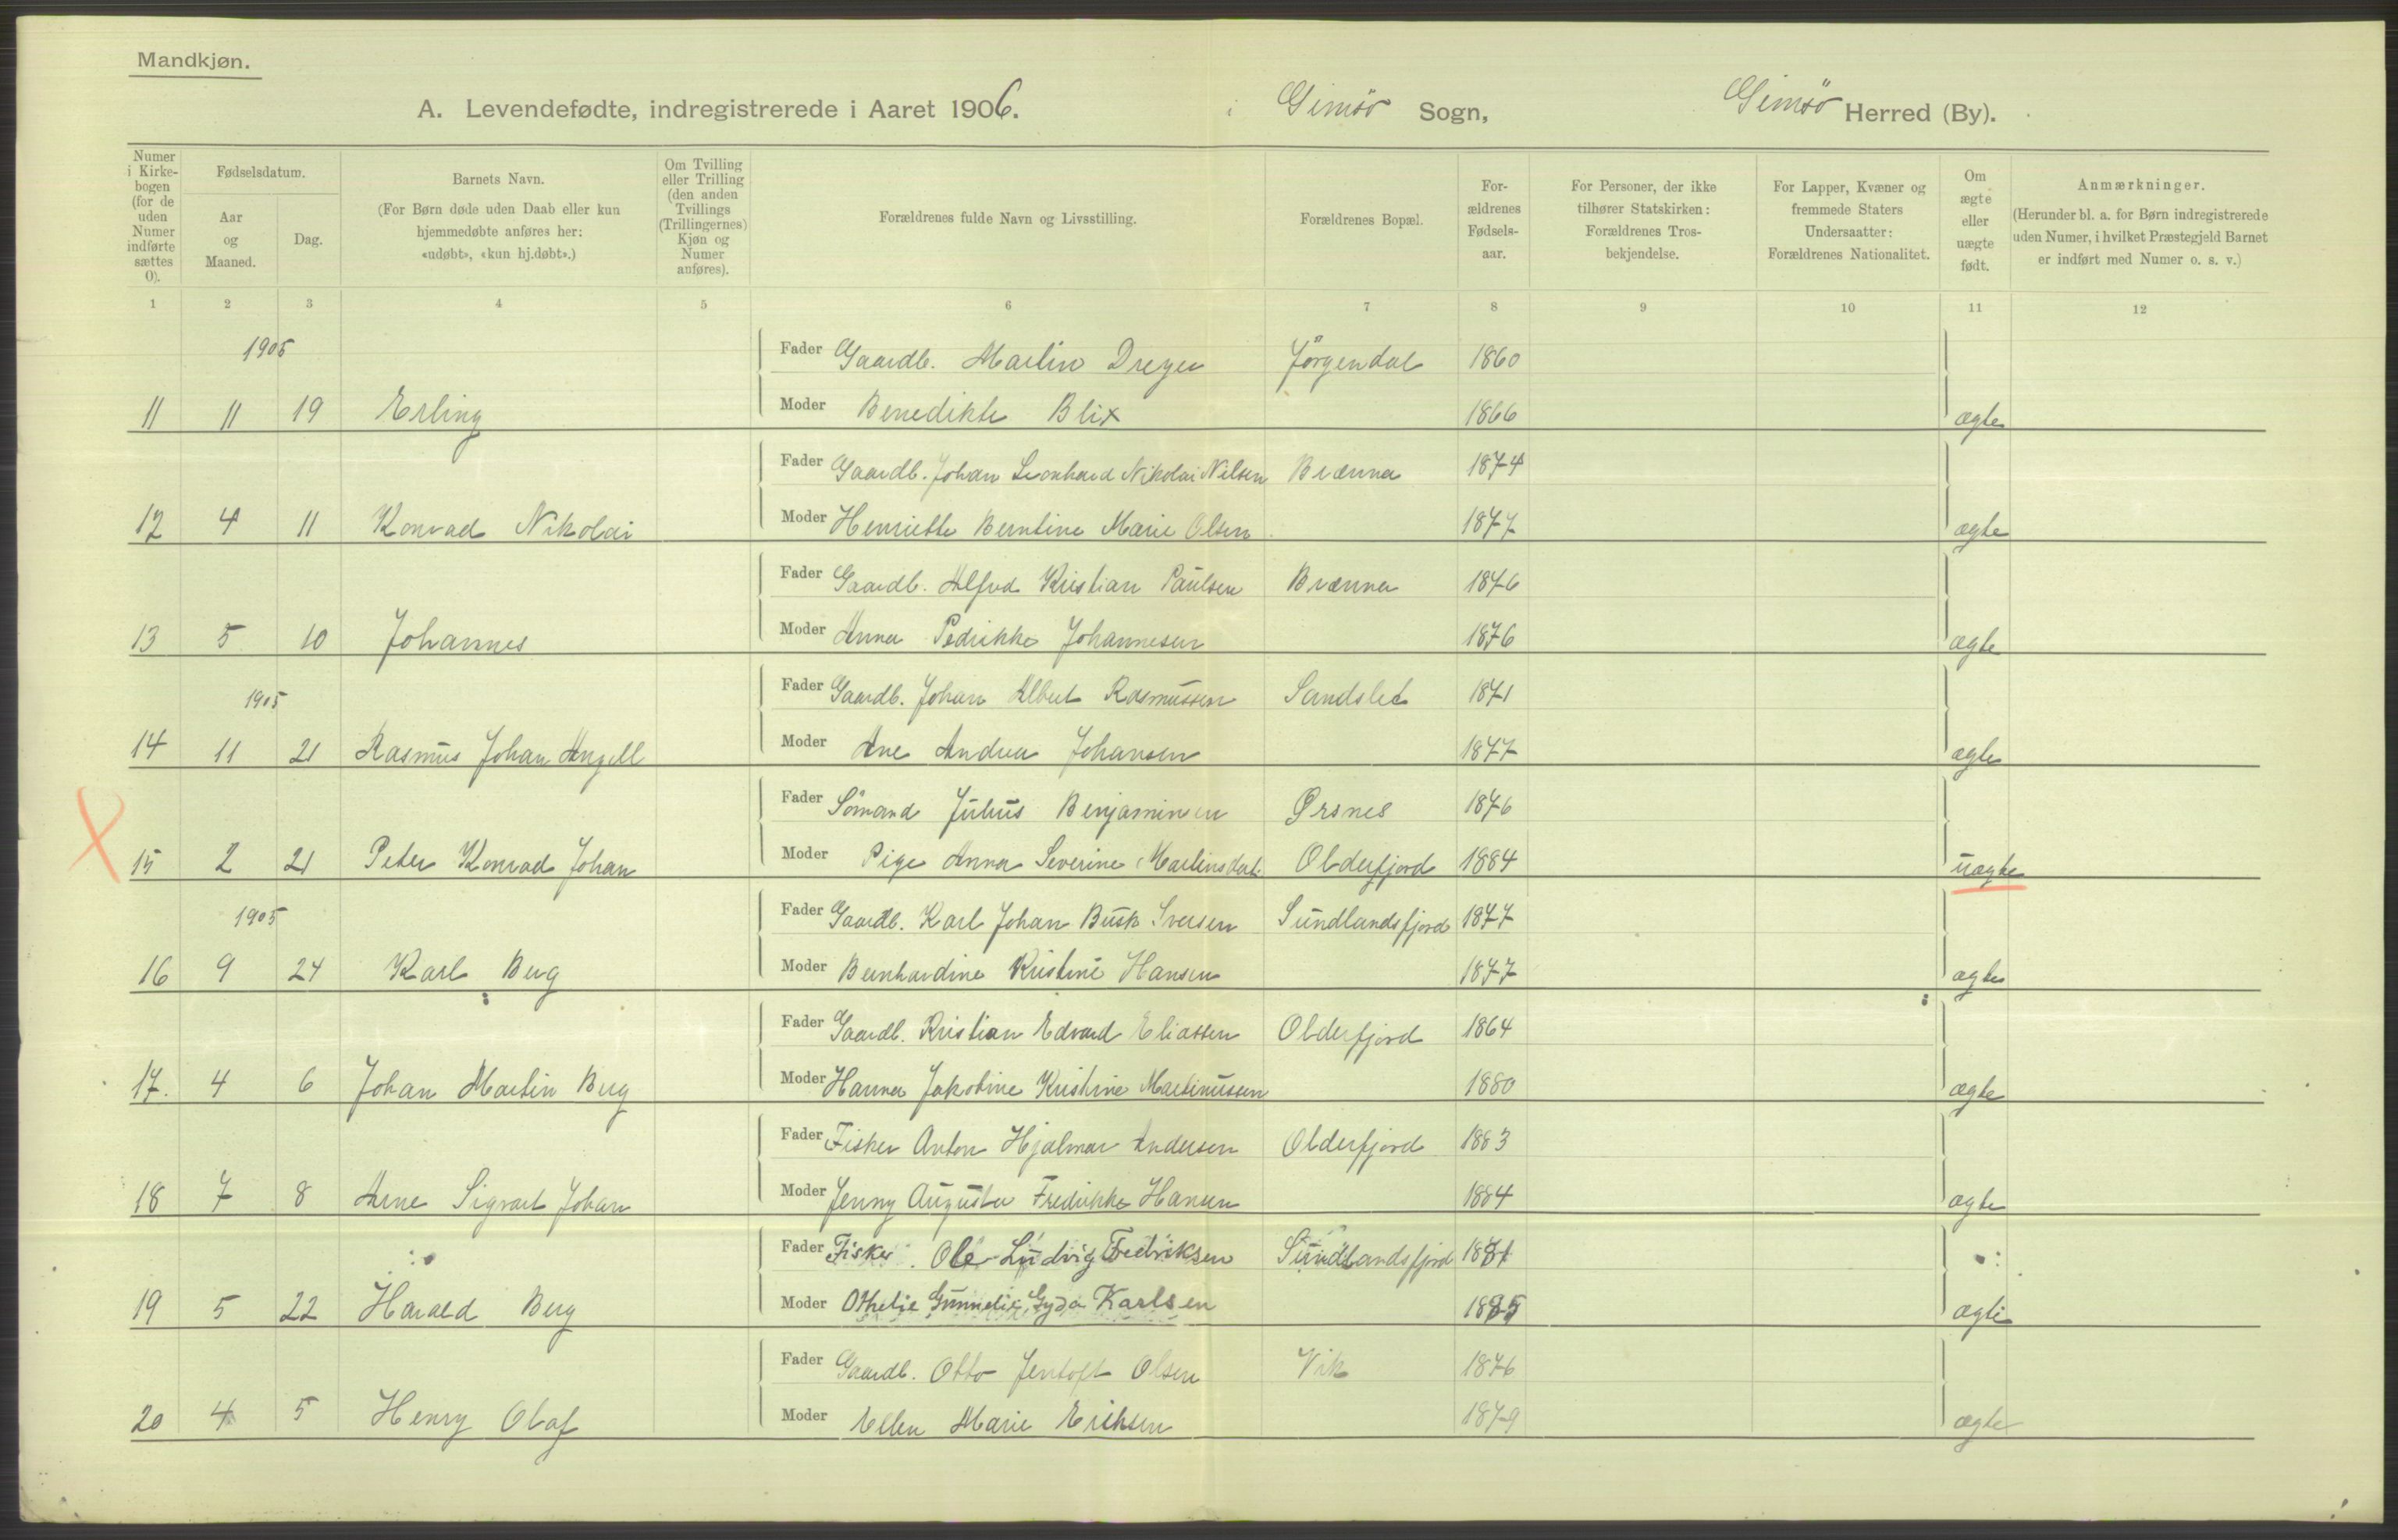 Mandkjøn.
A. Levendefødte, indregistrerede i Aaret 1906. i Gimsö Sogn, Gimsö Herred (By).
Numer i Kirkebogen (for de uden Numer indførte sættes 0).
Fødselsdatum.
Aar og Maaned.
Dag.
Barnets Navn.
(For Børn døde uden Daab eller kun hjemmedøbte anføres her: «udøbt», «kun hj.døbt».)
Om Tvilling eller Trilling (den anden Tvillings (Trillingernes) Kjøn og Numer anføres).
Forældrenes fulde Navn og Livsstilling.
Forældrenes Bopæl.
Forældrenes Fødselsaar.
For Personer, der ikke tilhører Statskirken: Forældrenes Trosbekjendelse.
For Lapper, Kvæner og fremmede Staters Undersaatter: Forældrenes Nationalitet.
Om ægte eller uægte født.
Anmærkninger.
(Herunder bl. a. for Børn indregistrerede uden Numer, i hvilket Præstegjeld Barnet er indført med Numer o. s. v.)
1 2 3 4 5 6 7 8 9 10 11 12
1905 Fader Gaardb. Martin Dreyer Jörgendal 1860
11 11 19 Erling Moder Benedikte Blix 1866 ægte
Fader Gaardb. Johan Leonhard Nikolai Nilsen Brænna 1874
12 4 11 Konrad Nikolai Moder Henriette Berntine Marie Olsen 1877 ægte
Fader Gaardb. Alfred Kristian Paulsen Brænna 1876
13 5 10 Johannes Moder Anna Pedrikke Johannesen 1876 ægte
1905 Fader Gaardb. Johan Albert Rasmussen Sandslet 1871
14 11 21 Rasmus Johan Angell Moder Ane Andrea Johansen 1877 ægte
Fader Sömand Julius Benjaminsen Ørsnes 1876
15 2 21 Peter Konrad Johan Moder Pige Anna Severine Martinsdat. Olderfjord 1884 uægte
1905 Fader Gaardb. Karl Johan Busk Iversen Sundlandsfjord 1877
16 9 24 Karl Berg Moder Bernhardine Kristine Hansen 1877 ægte
Fader Gaardb. Kristian Edvard Eliassen Olderfjord 1864
17. 4 6 Johan Martin Berg Moder Hanna Jakobine Kristine Martinussen 1880 ægte
Fader Fisker Anton Hjalmar Andersen Olderfjord 1883
18 7 8 Arne Sigvart Johan Moder Jenny Augusta Fredrikke Hansen 1884 ægte
Fader Fisker Ole Ludvig Fredriksen Sundlandsfjord 1881
19 5 22 Harald Berg Moder Othelie Gunnelie Gyda Karlsen 1885 ægte
Fader Gaardb. Otto Jentoft Olsen Vik 1876
20 4 5 Henry Olaf Moder Ellen Marie Eriksen 1879 ægte